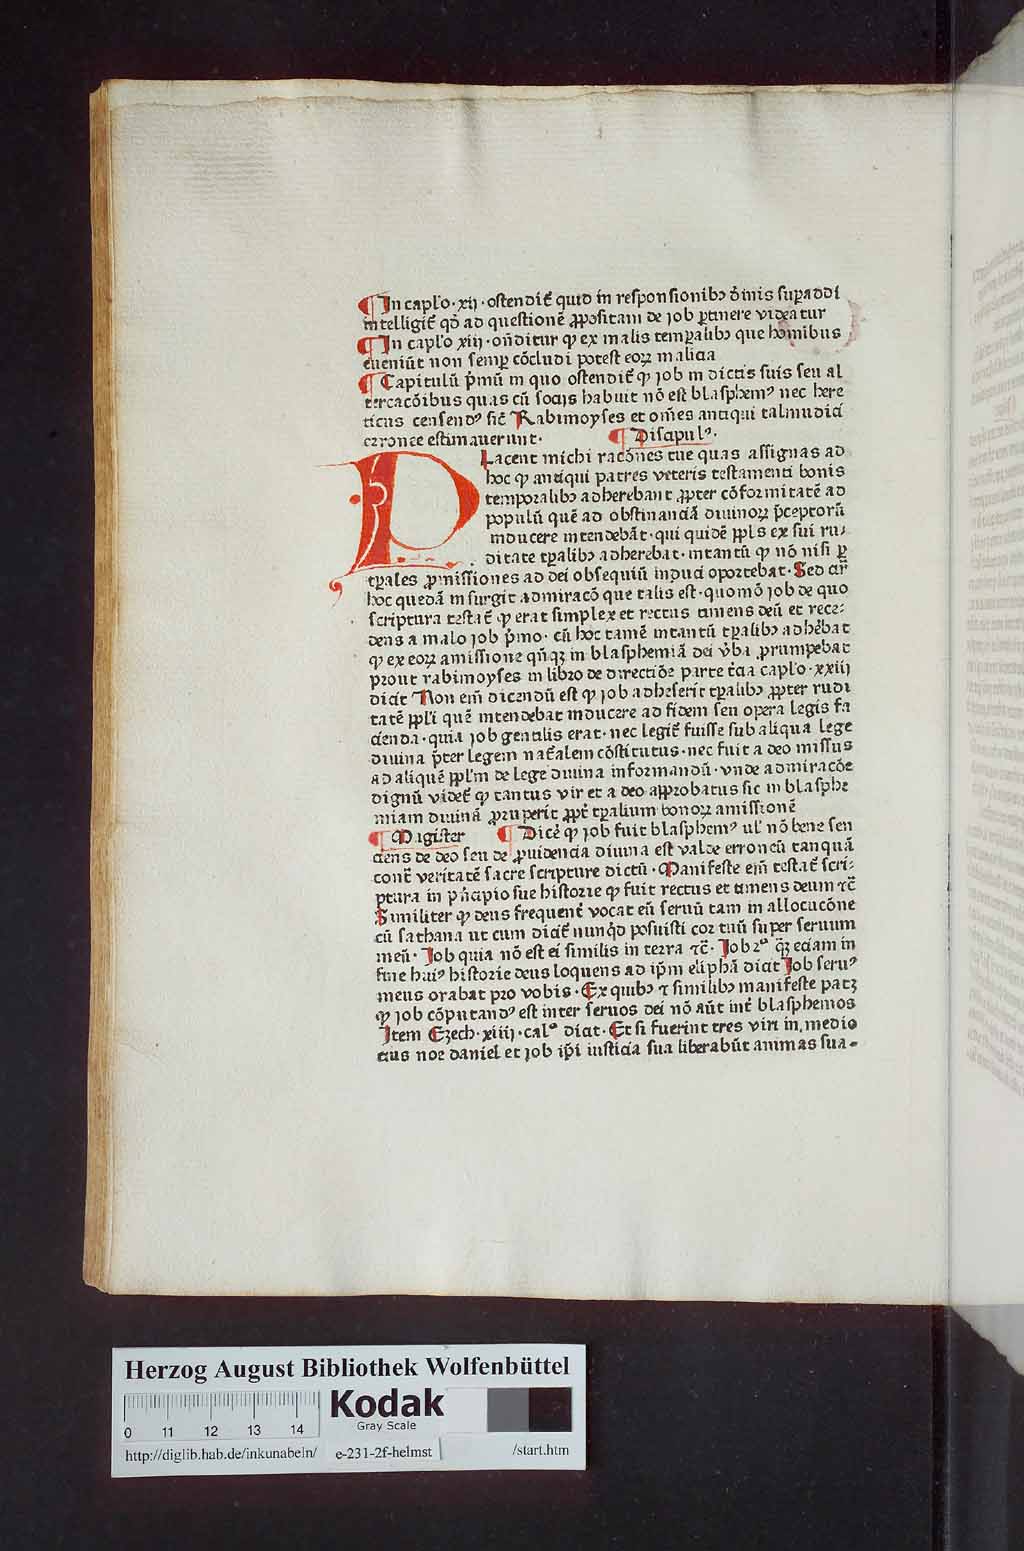 ¶In capl'o · xij · ostendit᷑ quid in responsionibꝫ d̄inis suꝑaddi
intelligit᷑ qd̓ ad questionē ꝓpositam de iob ꝑtinere videatur
¶In capl'o xiij · on̄ditur ꝙ ex malis temꝑalibꝫ que hoīnibus
eueniūt non semꝑ cōcludi potest eoꝝ malicia
¶Capitulū p̄mū in quo ostendit᷑ ꝙ iob in dictis suis seu al
tercacōibus quas cū socijs habuit nō est blasphemꝰ nec here
ticus censendꝰ sic̄ Rabimoyses et om̄es antiqui talmudici
erronee estimauerunt ·
¶Discipulꝰ ·
Placent michi racōnes tue quas assignas ad
hoc ꝙ antiqui patres veteris testamenti bonis
temporalibꝫ adherebant ꝓpter cōformitatē ad
populū quē ad obstinanciā diuinoꝝ p̄ceptorū
inducere intendebāt · qui quidē ppl̄s ex sui ru⸗
ditate tꝑalibꝫ adherebat · intantū ꝙ nō nisi ꝑ
tꝑales ꝓmissiones ad dei obsequiū induci oportebat · Sed cir̄
hoc quedā insurgit admiracō que talis est · quomō iob de quo
scriptura testat᷑ ꝙ erat simplex et rectus timens deū et rece⸗
dens a malo iob p̄mo · cū hoc tamē intantū tꝑalibꝫ adhēbat
ꝙ ex eoꝝ amissione qn̄qꝫ in blasphemiā dei v̓ba ꝓrumpebat
prout rabimoyses in libro de directiōe parte t̓cia capl'o · xxiij
dicit Non em̄ dicendū est ꝙ iob adheserit tꝑalibꝫ ꝓpter rudi
tatē ppl'i quē intendebat inducere ad fidem seu opera legis fa
cienda · quia iob gentilis erat · nec legit᷑ fuisse sub aliqua lege
diuina p̄ter legem nat᷑alem cōstitutus · nec fuit a deo missus
ad aliquē ppl'm de lege diuina informandū · vnde admiracōe
dignū videt᷑ ꝙ tantus vir et a deo approbatus sic in blasphe
miam diuinā ꝓruperit ꝓpt̄ tꝑalium bonoꝝ amissionē
¶Magister ¶Dice᷑ ꝙ iob fuit blasphemꝰ ul' nō bene sen
ciens de deo seu de ꝓuidencia diuina est valde erroneū tanquā
cont᷑ veritatē sacre scripture dictū · Manifeste em̄ testat᷑ scri⸗
ptura in p̄ncipio sue historie ꝙ fuit rectus et timens deum ⁊c̄
Similiter ꝙ deus frequent᷑ vocat eū seruū tam in allocucōne
cū sathana ut cum dicit᷑ nunqd̓ posuisti cor tuū super seruum
meū · Iob quia nō est ei similis in terra ⁊c̄ · Iob 2ᵒ q̄ꝫ eciam in
fine huiꝰ historie deus loquens ad ip̄m eliphā dicit Iob seruꝰ
meus orabat pro vobis · Ex quibꝫ ⁊ similibꝫ manifeste patꝫ
ꝙ iob cōputandꝰ est inter seruos dei nō aūt int᷑ blasphemos
Item Ezech · xiiij · calᵒ dicit · Et si fuerint tres viri in medio
eius noe daniel et iob ip̄i iusticia sua liberabūt animas sua⸗
Herzog August Bibliothek Wolfenbüttel
0 11 12 13 14
Kodak
Gray Scale
http://diglib.hab.de/inkunabeln/
e-231-2f-helmst
/start.htm